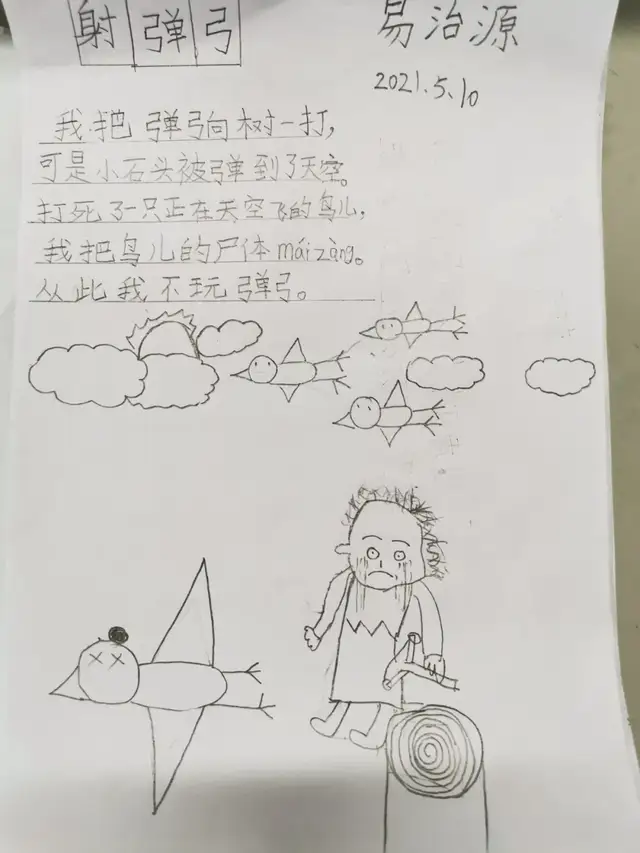 射弹弓
易治源
2021.5.10
我把弹弓向树一打，
可是小石头被弹到了天空。
打死了一只正在天空飞的鸟儿，
我把鸟儿的尸体mái zàng。
从此我不玩弹弓。